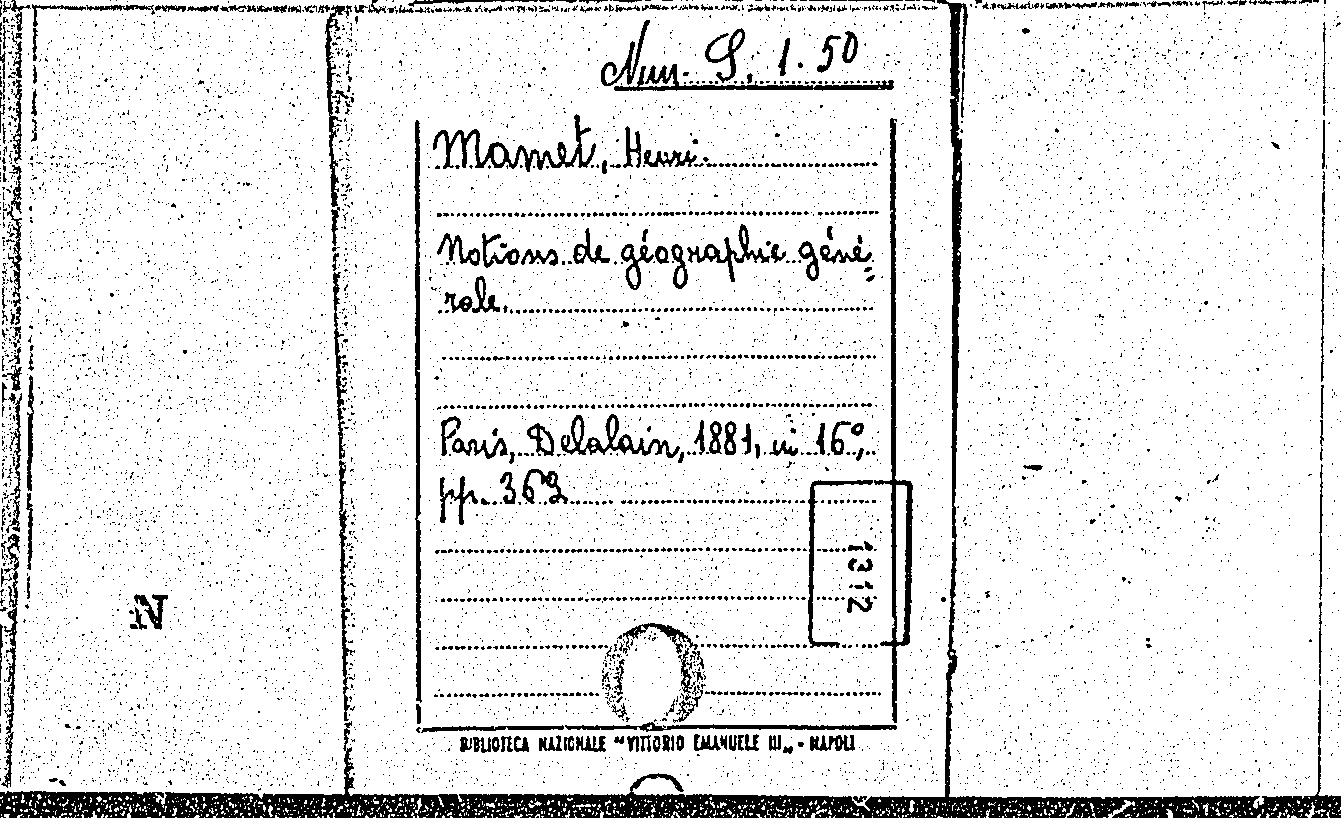 Nun. S. 1. 50
Mamet, Henri.
Notions de géographie géné=
rale.
Paris, Delalain, 1881, in 16º,
pp. 362
1312
N
BIBLIOTECA NAZIONALE "VITTORIO EMANUELE III„ - NAPOLI